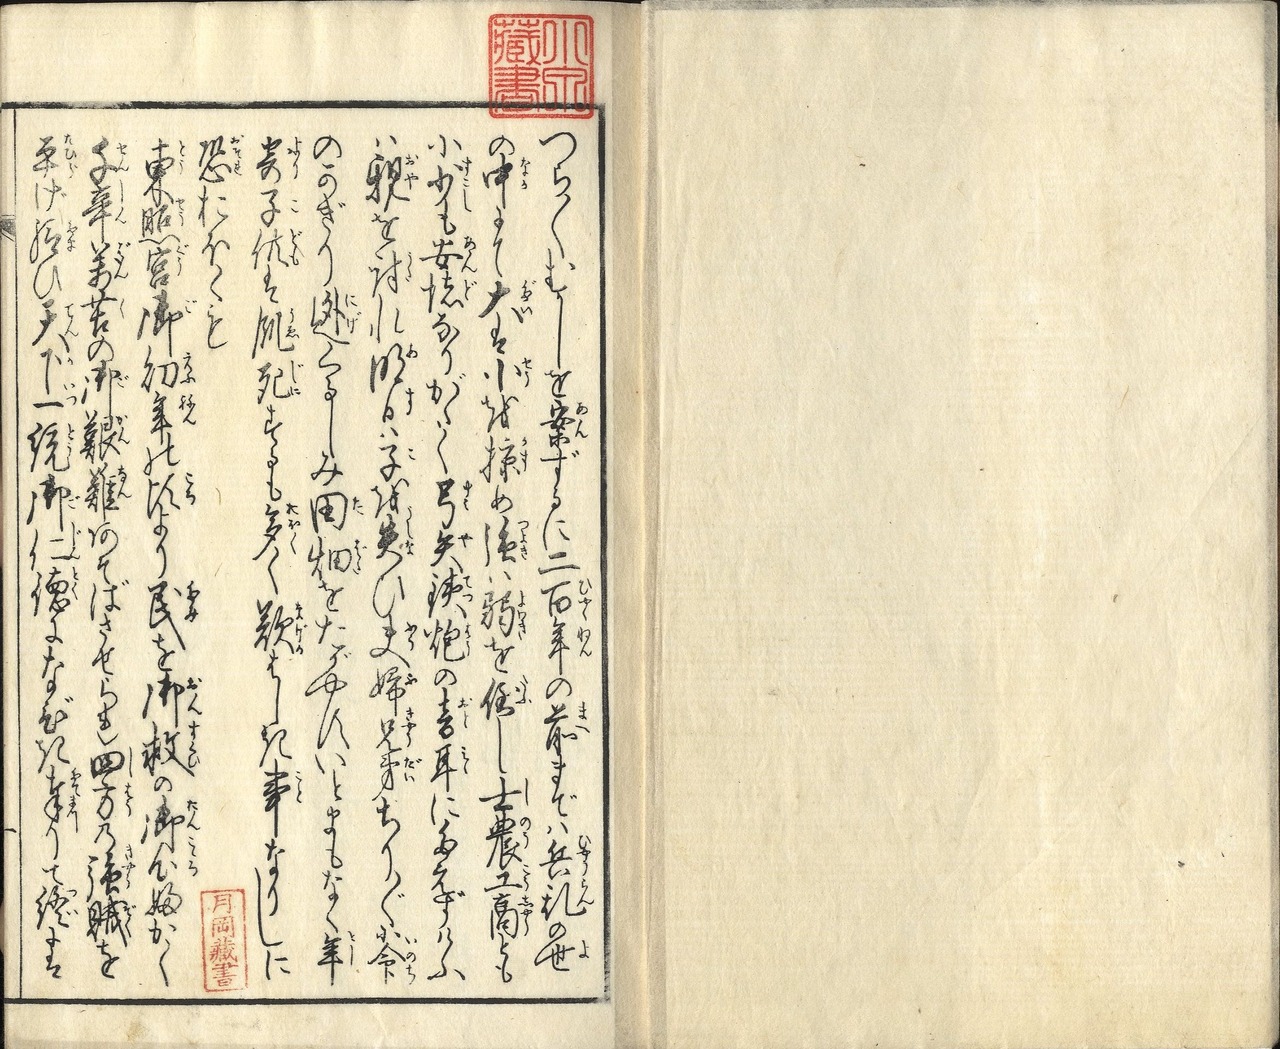 つら〱むかしを案ずるに二百年の前までハ兵乱の世
の中にて大は小を掠め強ハ弱を倒し士農工商とも
に少も安堵なりがたく弓矢鉄炮の音耳にたえずけふ
ハ親を討れ明日ハ子を失ひ夫婦兄弟ちり〲に命
のかぎり逃くるしみ田畑をたがやすいとまもなく年
より子供は飢死するも多く歎はしき事なりしに
恐れおほくも
東照宮御幼年の頃より民を御救の御心婦かく
千辛萬苦の御艱難あそばさせられ四方の強賊を
平げ給ひ天下一統御仁徳になびき奉りて終には
小泉藏書
月岡藏書